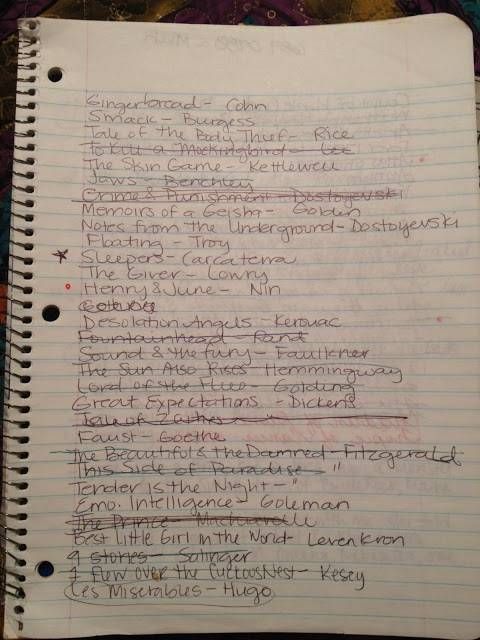 Gingerbread - Cohn
Smack - Burgess
Tale of the Body Thief - Rice
To Kill a Mockingbird - Lee
The Skin Game - Kettlewell
Jaws - Benchley
Crime & Punishment - Dostoyevski
Memoirs of a Geisha - Golden
Notes from the Underground - Dostoyevski
Floating - Troy
Sleepers - Carcaterra
The Giver - Lowry
Henry & June - Nin
Desolation Angels - Kerouac
Fountainhead - Rand
Sound & the Fury - Faulkner
The Sun Also Rises - Hemmingway
Lord of the Flies - Golding
Great Expectations - Dickens
Tale of 2 Cities - "
Faust - Goethe
The Beautiful & the Damned - Fitzgerald
This Side of Paradise - "
Tender is the Night - "
Emo. Intelligence - Goleman
The Prince - Machiavelli
Best Little Girl in the World - Levenkron
9 stories - Salinger
1 flew over the Cuckoos Nest - Kesey
Les Miserables - Hugo